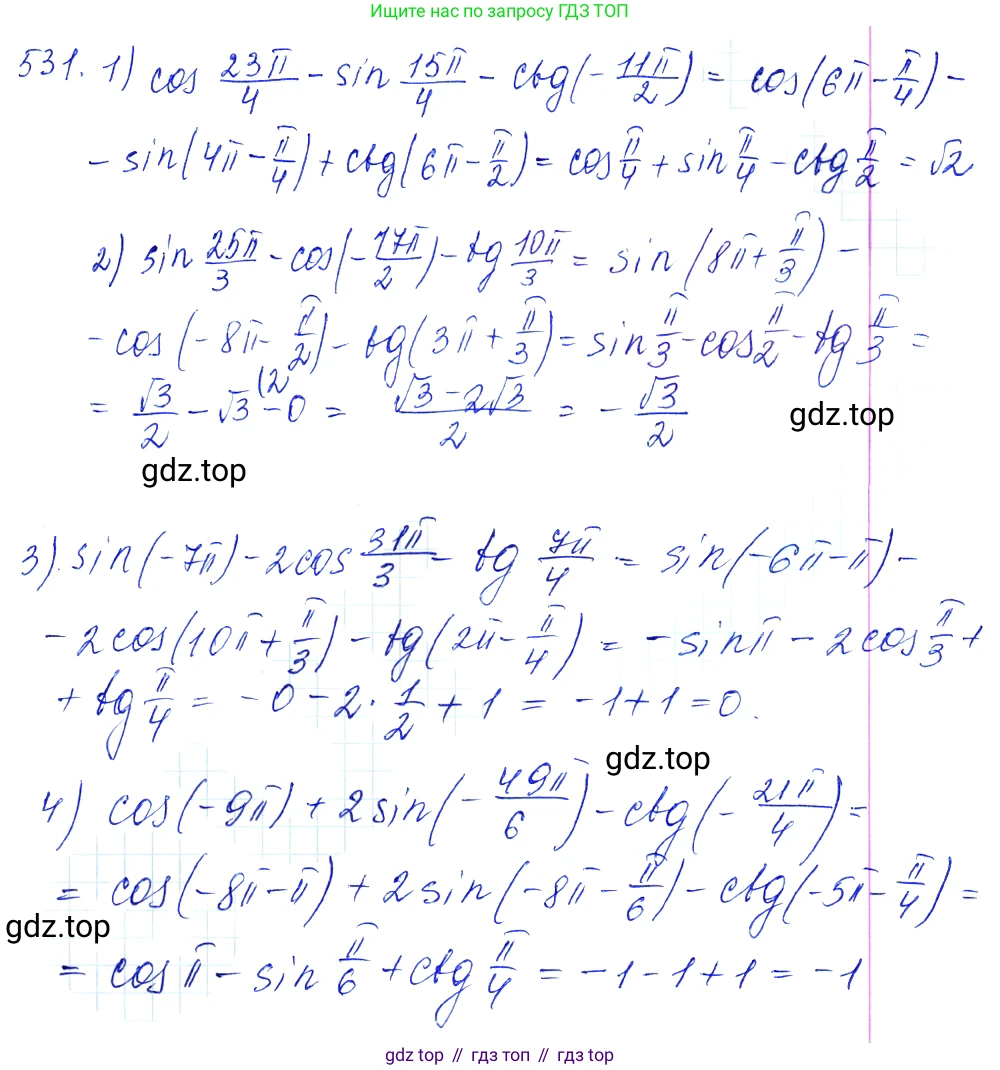 Ищите нас по запросу ГДЗ ТОП
531. 1) cos 23π/4 - sin 15π/4 - ctg(-11π/2) = cos(6π - π/4) -
- sin(4π - π/4) + ctg(6π - π/2) = cos π/4 + sin π/4 - ctg π/2 = √2
2) sin 25π/3 - cos(-17π/2) - tg 10π/3 = sin(8π + π/3) -
- cos(-8π - π/2) - tg(3π + π/3) = sin π/3 - cos π/2 - tg π/3 =
= √3/2 - √3 (2 - 0 = (√3 - 2√3)/2 = - √3/2
gdz.top
gdz.top
3). sin(-7π) - 2cos 31π/3 - tg 7π/4 = sin(-6π - π) -
- 2cos(10π + π/3) - tg(2π - π/4) = - sin π - 2cos π/3 +
+ tg π/4 = -0 - 2 · 1/2 + 1 = -1 + 1 = 0.
gdz.top
4) cos(-9π) + 2sin(-49π/6) - ctg(-21π/4) =
= cos(-8π - π) + 2sin(-8π - π/6) - ctg(-5π - π/4) =
gdz.top
= cos π - sin π/6 + ctg π/4 = -1 - 1 + 1 = -1
gdz top // гдз топ // гдз top